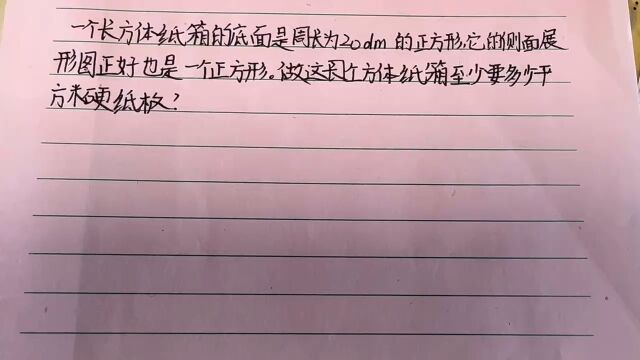 一个长方体纸箱的底面是周长为20dm的正方形,它的侧面展
形图正好也是一个正方形。做这个长方体纸箱至少要多少平
方米硬纸板?